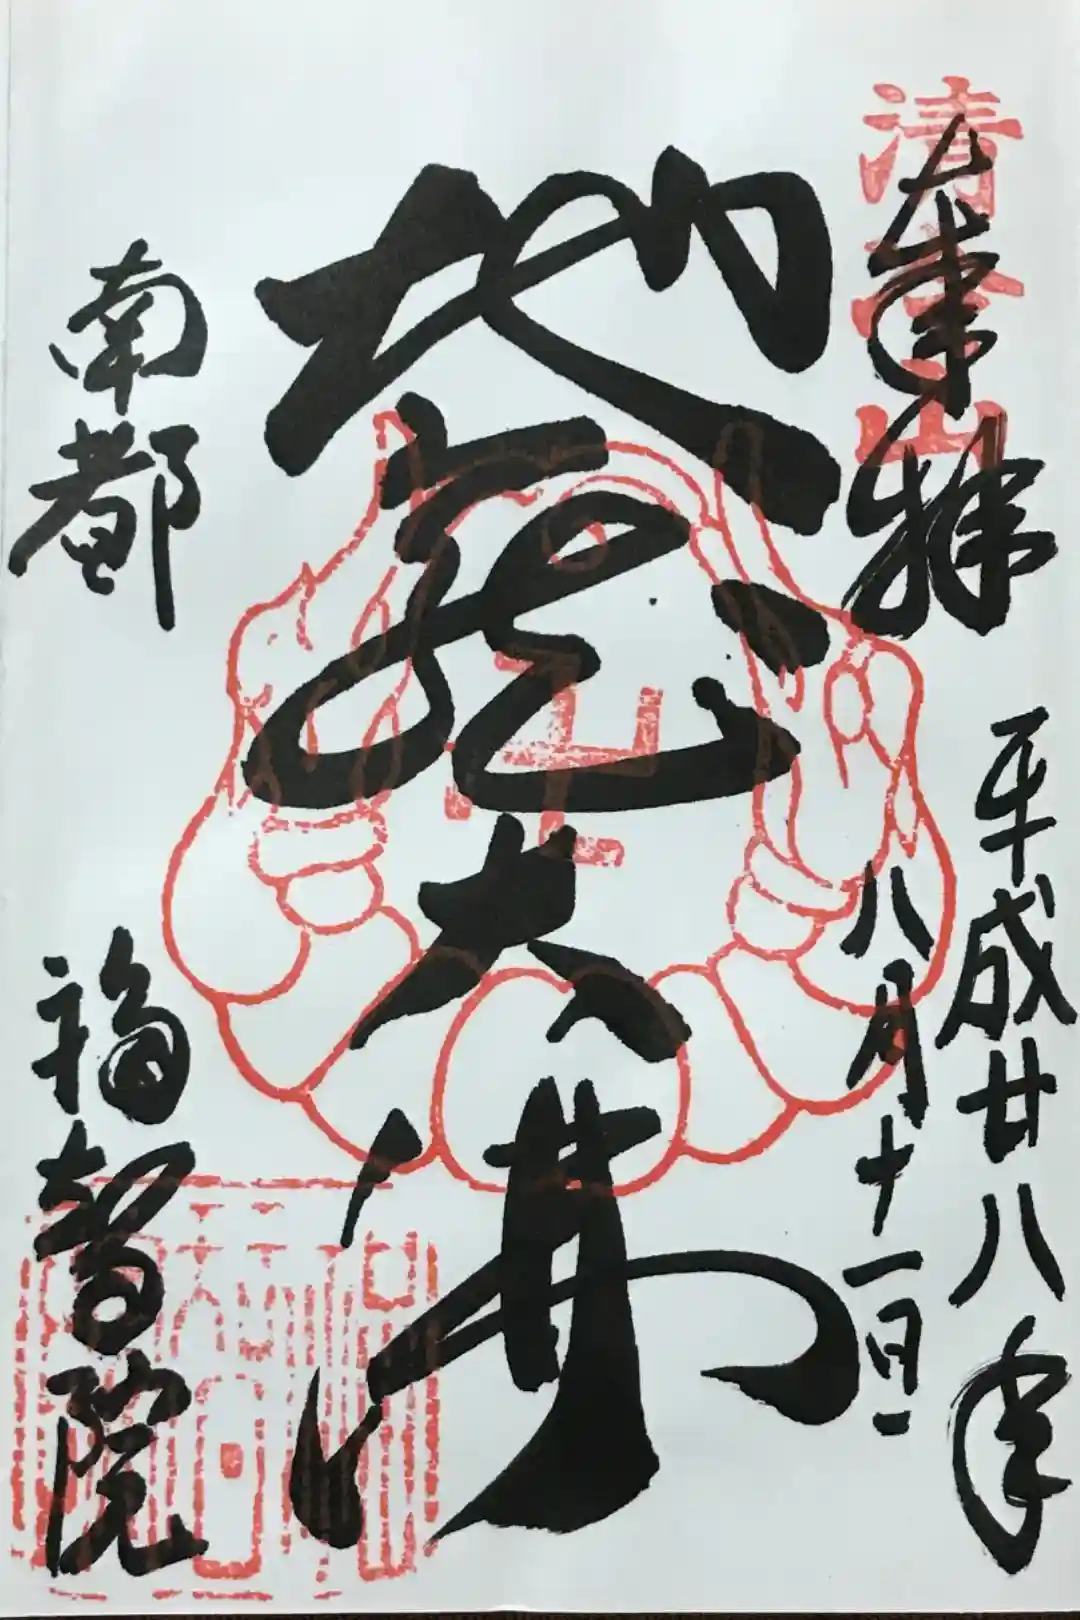 奉拝
平成廿八年
八月十一日
地蔵大𦬇
南都
福智院